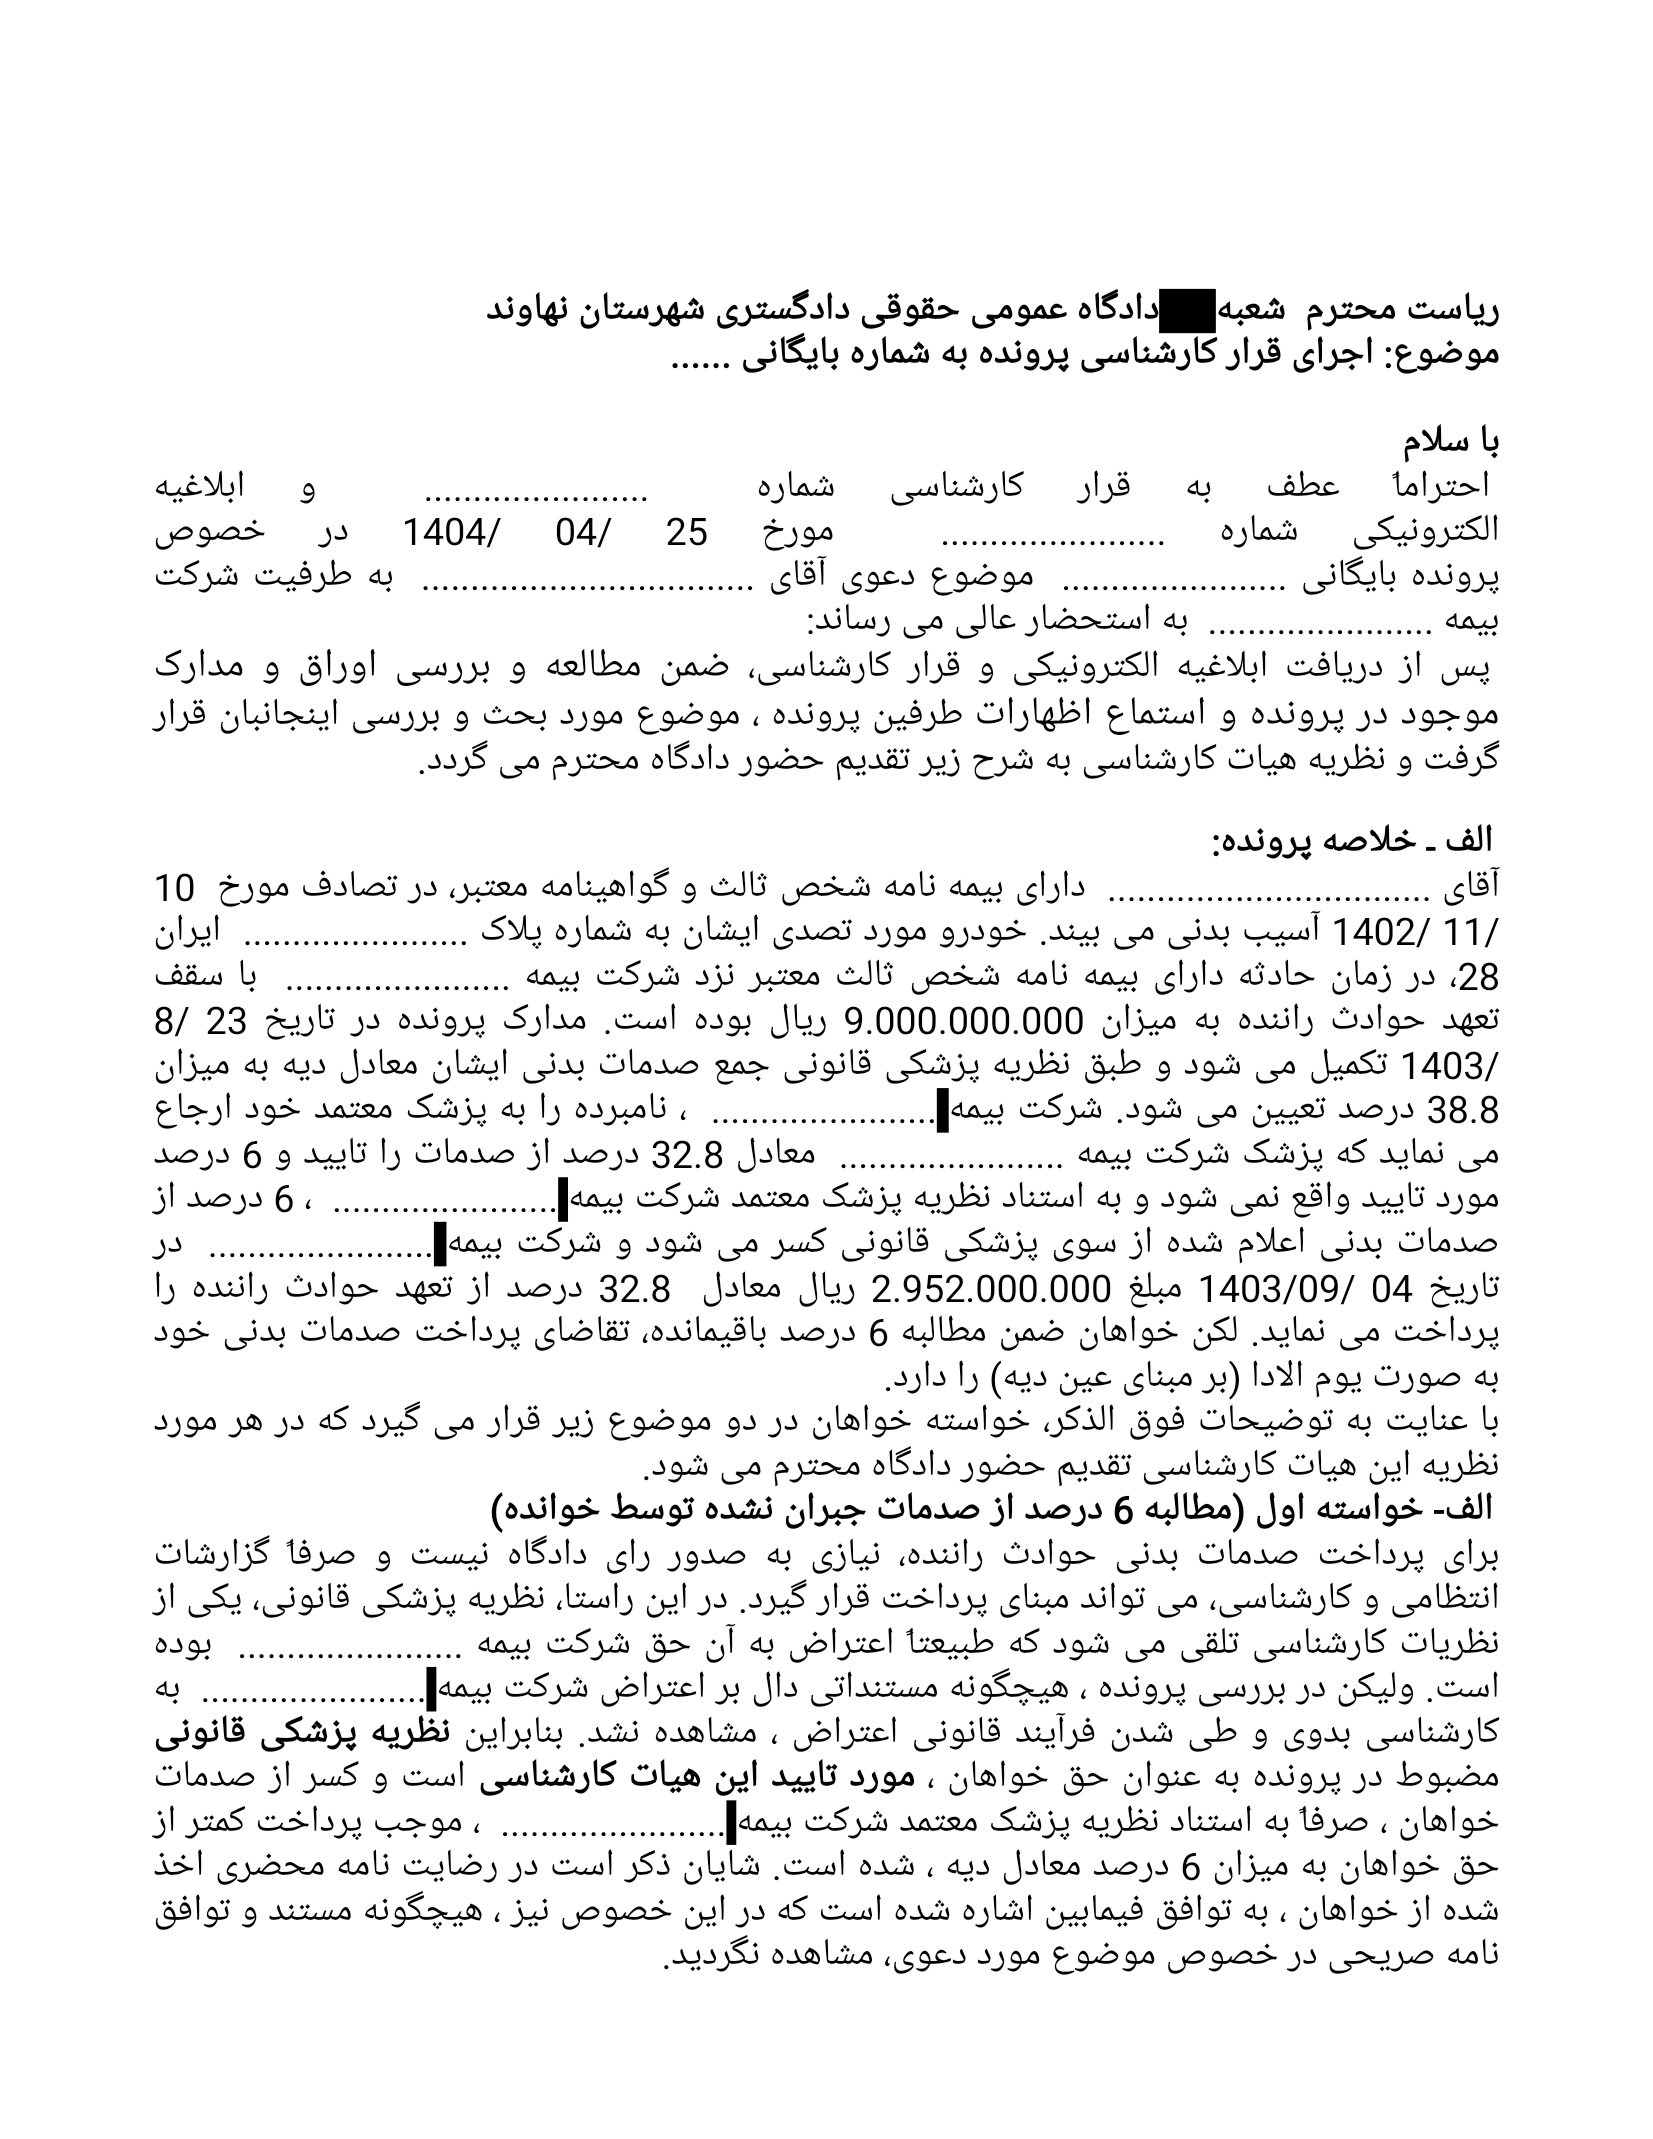 ریاست محترم شعبه دادگاه عمومی حقوقی دادگستری شهرستان نهاوند
موضوع: اجرای قرار کارشناسی پرونده به شماره بایگانی ......
با سلام
احتراماً عطف به قرار کارشناسی شماره ....................... و ابلاغیه
الکترونیکی شماره ....................... مورخ 25 /04 /1404 در خصوص
پرونده بایگانی ....................... موضوع دعوی آقای .................................. به طرفیت شرکت
بیمه ....................... به استحضار عالی می رساند:
پس از دریافت ابلاغیه الکترونیکی و قرار کارشناسی، ضمن مطالعه و بررسی اوراق و مدارک
موجود در پرونده و استماع اظهارات طرفین پرونده ، موضوع مورد بحث و بررسی اینجانبان قرار
گرفت و نظریه هیات کارشناسی به شرح زیر تقدیم حضور دادگاه محترم می گردد.
الف ـ خلاصه پرونده:
آقای ................................. دارای بیمه نامه شخص ثالث و گواهینامه معتبر، در تصادف مورخ 10
/11 /1402 آسیب بدنی می بیند. خودرو مورد تصدی ایشان به شماره پلاک ....................... ایران
28، در زمان حادثه دارای بیمه نامه شخص ثالث معتبر نزد شرکت بیمه ....................... با سقف
تعهد حوادث راننده به میزان 9.000.000.000 ریال بوده است. مدارک پرونده در تاریخ 23 /8
/1403 تکمیل می شود و طبق نظریه پزشکی قانونی جمع صدمات بدنی ایشان معادل دیه به میزان
38.8 درصد تعیین می شود. شرکت بیمه ....................... ، نامبرده را به پزشک معتمد خود ارجاع
می نماید که پزشک شرکت بیمه ....................... معادل 32.8 درصد از صدمات را تایید و 6 درصد
مورد تایید واقع نمی شود و به استناد نظریه پزشک معتمد شرکت بیمه ....................... ، 6 درصد از
صدمات بدنی اعلام شده از سوی پزشکی قانونی کسر می شود و شرکت بیمه ....................... در
تاریخ 04 /1403/09 مبلغ 2.952.000.000 ریال معادل 32.8 درصد از تعهد حوادث راننده را
پرداخت می نماید. لکن خواهان ضمن مطالبه 6 درصد باقیمانده، تقاضای پرداخت صدمات بدنی خود
به صورت یوم الادا (بر مبنای عین دیه) را دارد.
با عنایت به توضیحات فوق الذکر، خواسته خواهان در دو موضوع زیر قرار می گیرد که در هر مورد
نظریه این هیات کارشناسی تقدیم حضور دادگاه محترم می شود.
الف- خواسته اول (مطالبه 6 درصد از صدمات جبران نشده توسط خوانده)
برای پرداخت صدمات بدنی حوادث راننده، نیازی به صدور رای دادگاه نیست و صرفاً گزارشات
انتظامی و کارشناسی، می تواند مبنای پرداخت قرار گیرد. در این راستا، نظریه پزشکی قانونی، یکی از
نظریات کارشناسی تلقی می شود که طبیعتاً اعتراض به آن حق شرکت بیمه ....................... بوده
است. ولیکن در بررسی پرونده ، هیچگونه مستنداتی دال بر اعتراض شرکت بیمه ....................... به
کارشناسی بدوی و طی شدن فرآیند قانونی اعتراض ، مشاهده نشد. بنابراین نظریه پزشکی قانونی
مضبوط در پرونده به عنوان حق خواهان ، مورد تایید این هیات کارشناسی است و کسر از صدمات
خواهان ، صرفاً به استناد نظریه پزشک معتمد شرکت بیمه ....................... ، موجب پرداخت کمتر از
حق خواهان به میزان 6 درصد معادل دیه ، شده است. شایان ذکر است در رضایت نامه محضری اخذ
شده از خواهان ، به توافق فیمابین اشاره شده است که در این خصوص نیز ، هیچگونه مستند و توافق
نامه صریحی در خصوص موضوع مورد دعوی، مشاهده نگردید.